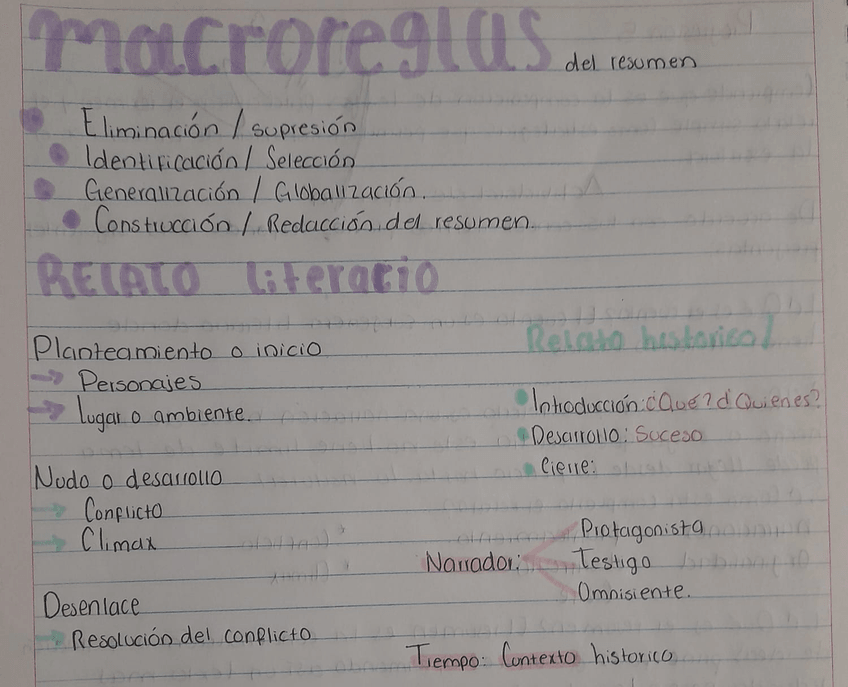 macroreglas del resumen
Eliminación / supresión
Identificación / Selección
Generalización / Globalización.
Construcción / Redacción del resumen.
RELATO literario
Planteamiento o inicio
→ Personajes
→ Lugar o ambiente.
Nudo o desarrollo
→ Conflicto
→ Climax
Desenlace
→ Resolución del conflicto
Relato historico
Introducción: ¿Qué? ¿Quienes?
Desarrollo: Suceso
Cierre:
Narrador:
Protagonista
Testigo
Omnisiente.
Tiempo: Contexto historico